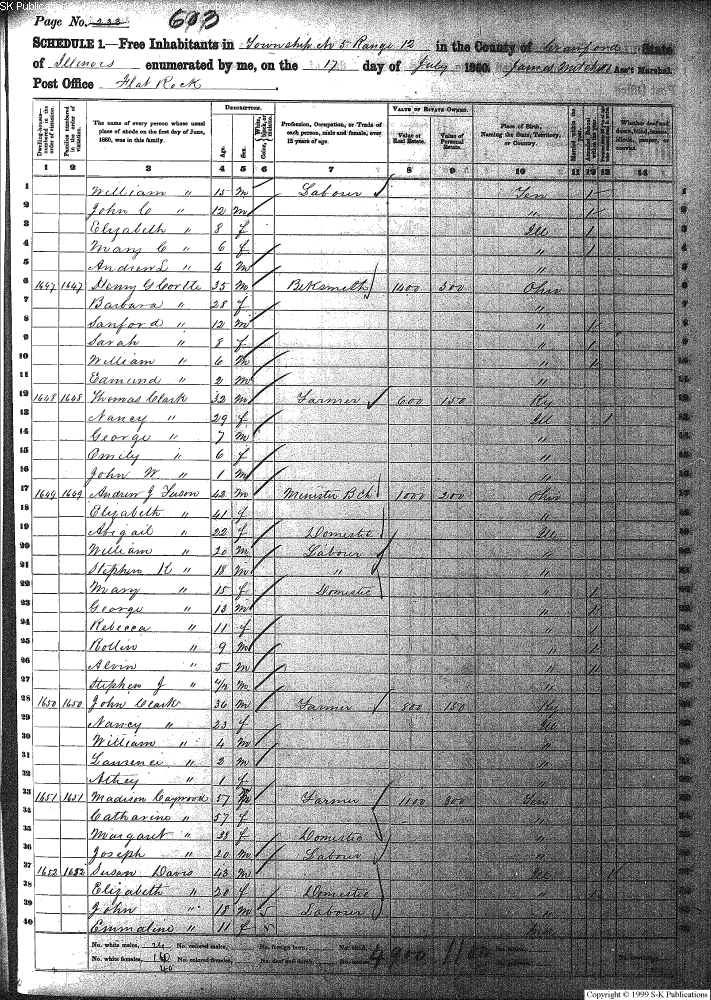 SK Publications
Page No. 233 603
SCHEDULE 1.—Free Inhabitants in Township No 5 Range 12 in the County of Crawford State
of Illinois enumerated by me, on the 17 day of July 1860. James Mitchell Ass't Marshal.
Post Office Flat Rock
DESCRIPTION. VALUE OF ESTATE OWNED.
Dwelling-houses—numbered in the order of visitation. Families numbered in the order of visitation. The name of every person whose usual place of abode on the first day of June, 1860, was in this family. Age. Sex. Color, Profession, Occupation, or Trade of each person, male and female, over 15 years of age. Value of Real Estate. Value of Personal Estate. Place of Birth, Naming the State, Territory, or Country. Married within the year. Whether deaf and dumb, blind, insane, idiotic, pauper, or convict.
1 2 3 4 5 6 7 8 9 10 11 12 13 14
1 William " 15 m Labour Ten 1
2 John C " 12 m " 1
3 Elizabeth " 8 f Ill 1
4 Mary C " 6 f " 1
5 Andrew L " 4 m "
6 1647 1647 Henry G 35 m BlkSmith 1400 300 Ohio
7 Barbara " 28 f "
8 Sanford " 12 m " 1
9 Sarah " 8 f " 1
10 William " 6 m " 1
11 Edmund " 2 m "
12 1648 1648 Thomas Clark 32 m Farmer 600 150 Ky
13 Nancy " 29 f Ill 1
14 George " 7 m "
15 Emily " 6 f "
16 John W " 1 m "
17 1649 1649 Andrew J Fuson 42 m Minister B Ch 1000 200 Ohio
18 Elizabeth " 41 f "
19 Abigail " 22 f Domestic Ill
20 William " 20 m Labour "
21 Stephen K " 18 m " "
22 Mary " 15 f Domestic " 1
23 George " 13 m " 1
24 Rebecca " 11 f " 1
25 Rollin " 9 m " 1
26 Alvin " 5 m " 1
27 Stephen J " m "
28 1650 1650 John Clark 36 m Farmer 800 150 Ky
29 Nancy " 23 f Ill
30 William " 4 m "
31 Laurence " 2 m "
32 " 1 f "
33 1651 1651 Madison Caywood 57 m Farmer 1100 300 Ten
34 Catharine " 57 f "
35 Margaret " 38 f Domestic "
36 Joseph " 20 m Labour "
37 1652 1652 Susan Davis 43 Ill 1
38 Elizabeth " 20 f Domestic "
39 John " 18 m Labour "
40 Emmaline " 11 f Ind
No. white males, 24 No. colored males, No. foreign born, No. blind, 4900 1100
No. white females, 16 No. colored females, No. deaf and dumb,
40
Copyright © 1999 S-K Publications